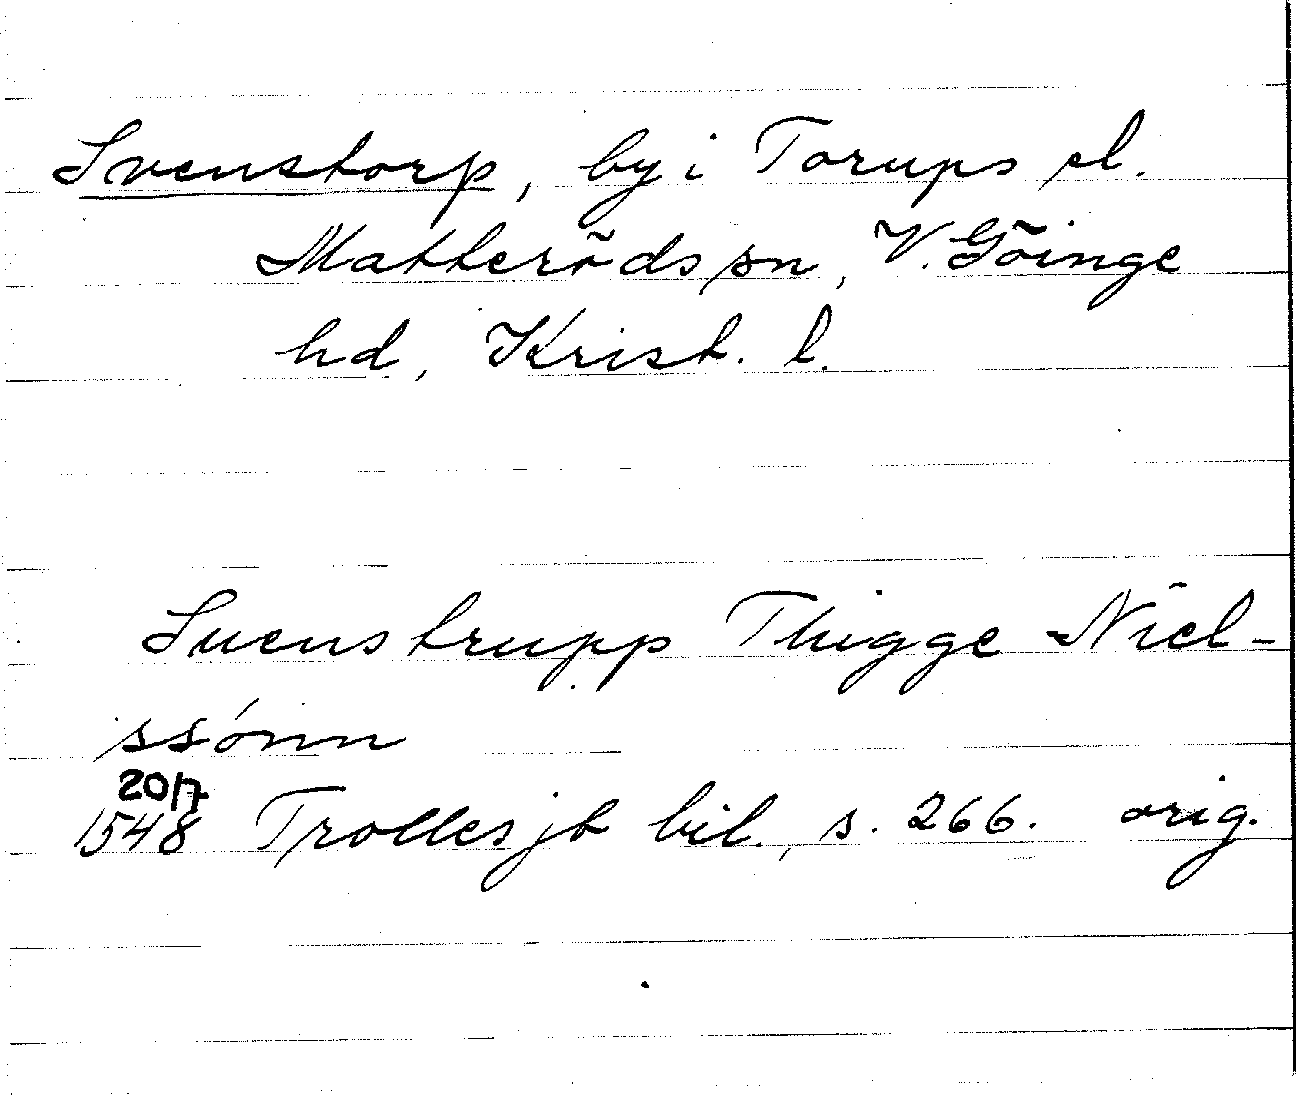 Svenstorp, by i Torups el.
Matteröds sn, V. Göinge
hd, Krist. l.
Suenstrupp Thigge Niel-
ssónn
20/7
1548 Trolles jb bil., s. 266. orig.